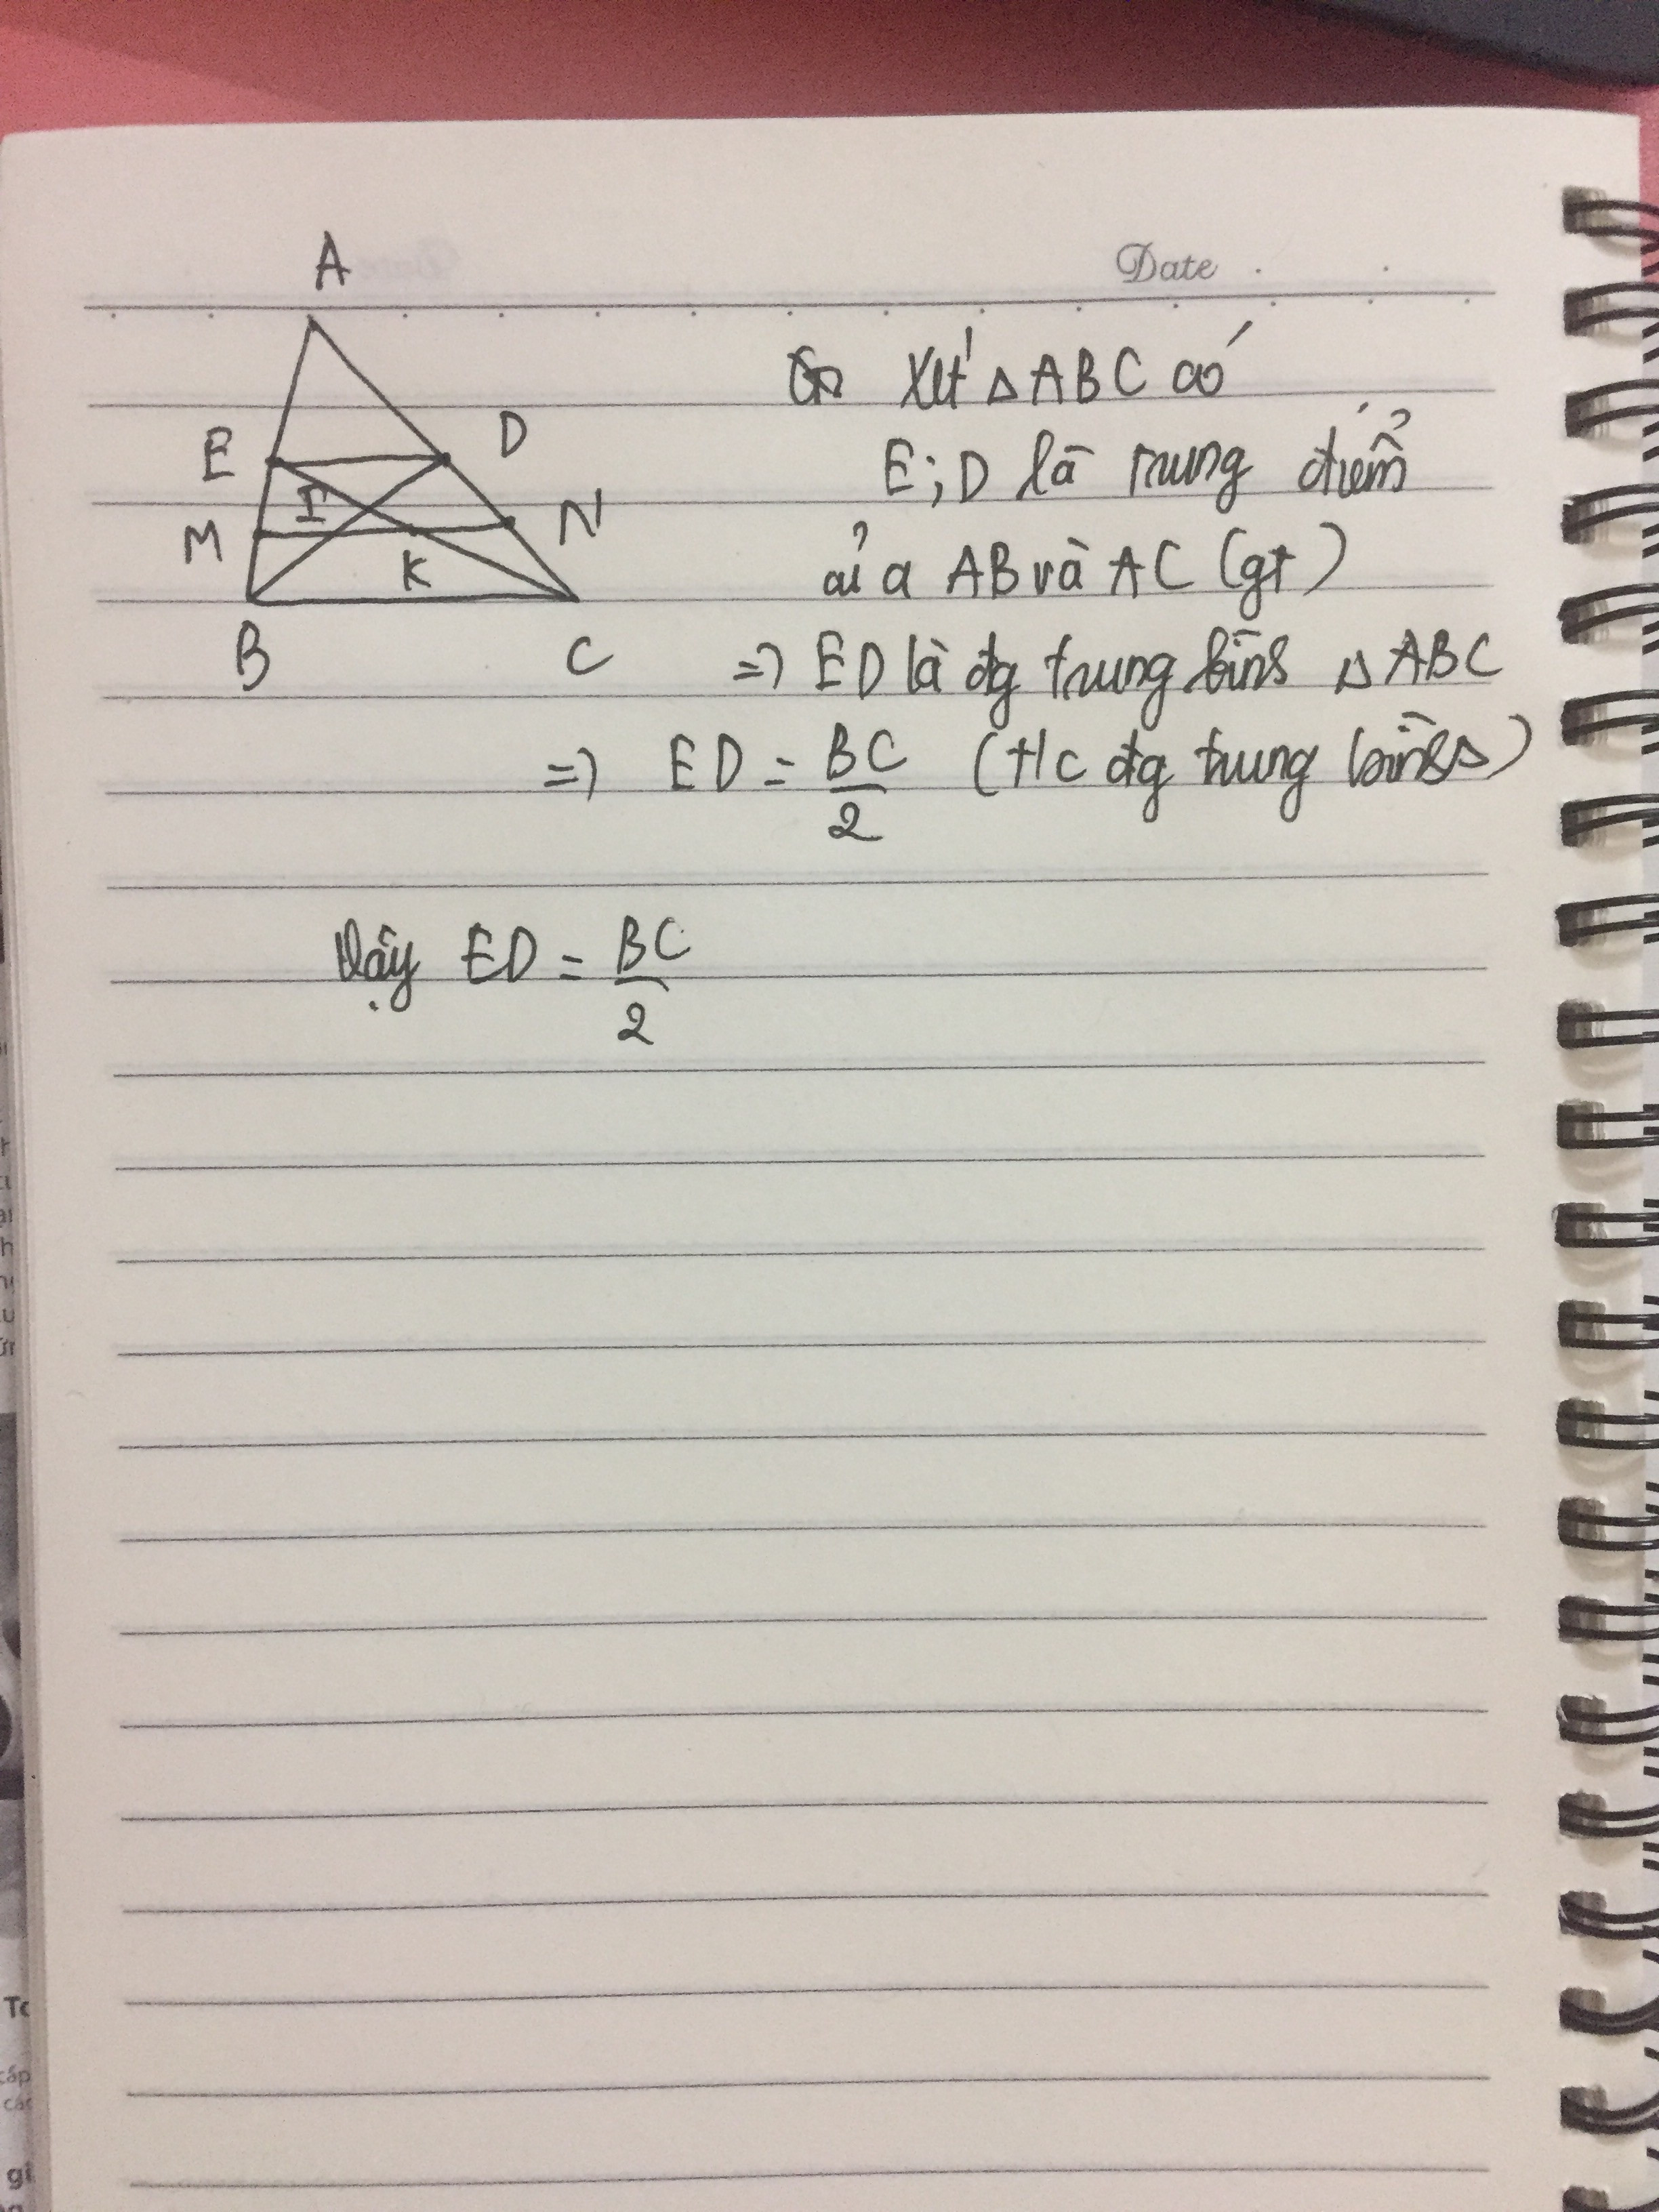 A
Date
E
D
I
M
N
K
B
C
Xét △ABC có
E;D là trung điểm
của AB và AC (gt)
=> ED là đg trung bình △ABC
=> ED = BC/2 (t/c đg trung bình △)
Vậy ED = BC/2